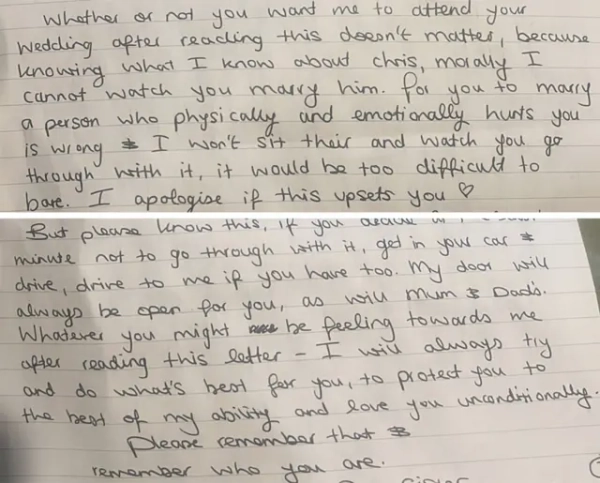 Whether or not you want me to attend your
wedding after reading this doesn't matter, because
knowing what I know about chris, morally I
cannot watch you marry him. For you to marry
a person who physically and emotionally hurts you
is wrong & I won't sit their and watch you go
through with it, it would be too difficult to
bare. I apologise if this upsets you ♡
But please know this, if you
minute not to go through with it, get in your car &
drive, drive to me if you have too. My door will
always be open for you, as will Mum & Dad's.
Whatever you might be feeling towards me
after reading this letter - I will always try
and do what's best for you, to protect you to
the best of my ability and love you unconditionally.
Please remember that &
remember who you are.